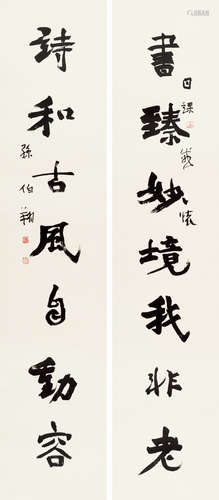 書臻妙境我非老
詩和古風自動容
孫伯翔